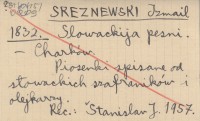 SREZNEWSKI Izmail
1832. Słowackija pesni.
– Charków.
Piosenki spisane od
słowackich szafraników i
olejkarzy.
Rec.: Stanislav J. 1957.